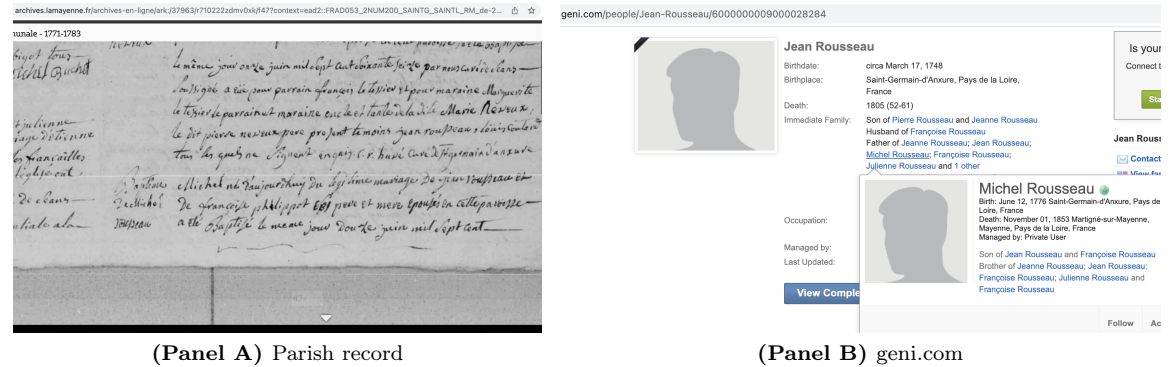 archives.lamayenne.fr/archives-en-ligne/ark:/37963/r710222zdmv0xk/f47?context=ead2::FRAD053_2NUM200_SAINTG_SAINTL_RM_de-2...
nunale - 1771-1783
le même jour onze juin mil sept cent soixante seize par nous curé
soussigné a été pour parrain françois le tessier et pour maraine Marguerite
le tessier parrain et maraine oncle et tante de la dite Marie Neveux,
le dit pierre neveux pere present temoins jean rousseau
tous les quels ne signent
st julienne
iage d'étienne
es fiançailles
l'église
de ceans
Baptême
de Michel
rousseau
Michel né d'aujourdhuy du légitime mariage de jean rousseau et
de françoise philippot pere et mere epoux en cette paroisse
a été Baptisé le meme jour douze juin mil sept cent
(Panel A) Parish record
geni.com/people/Jean-Rousseau/6000000009000028284
Jean Rousseau
Birthdate: circa March 17, 1748
Birthplace: Saint-Germain-d'Anxure, Pays de la Loire,
France
Death: 1805 (52-61)
Immediate Family: Son of Pierre Rousseau and Jeanne Rousseau
Husband of Françoise Rousseau
Father of Jeanne Rousseau; Jean Rousseau;
Michel Rousseau; Françoise Rousseau;
Julienne Rousseau and 1 other
Occupation:
Managed by:
Last Updated:
View Comple
Is your
Connect t
Sta
Jean Rouss
Contact
View fam
Michel Rousseau
Birth: June 12, 1776 Saint-Germain-d'Anxure, Pays de
Loire, France
Death: November 01, 1853 Martigné-sur-Mayenne,
Mayenne, Pays de la Loire, France
Managed by: Private User
Son of Jean Rousseau and Françoise Rousseau
Brother of Jeanne Rousseau; Jean Rousseau;
Françoise Rousseau; Julienne Rousseau and
Françoise Rousseau
Follow
Ac
(Panel B) geni.com